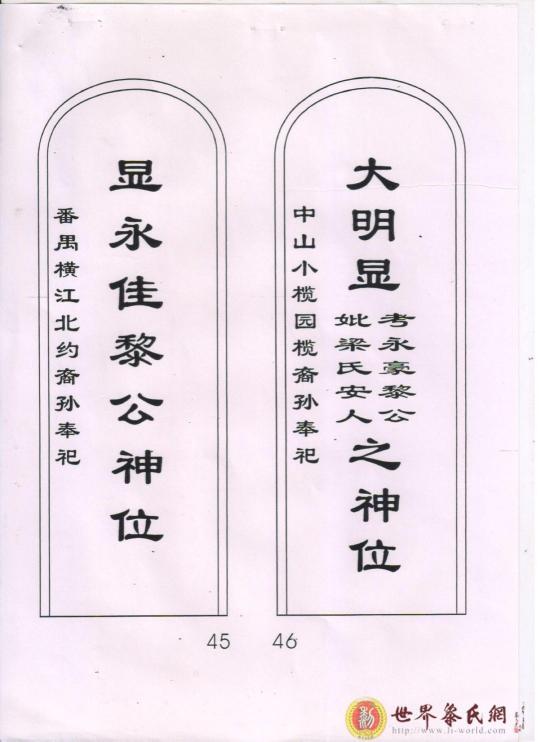 大明显
考永豪黎公
妣梁氏安人
之神位
中山小榄园榄裔孙奉祀
46
显永佳黎公神位
番禺横江北约裔孙奉祀
45
世界黎氏網
http://www.li-world.com